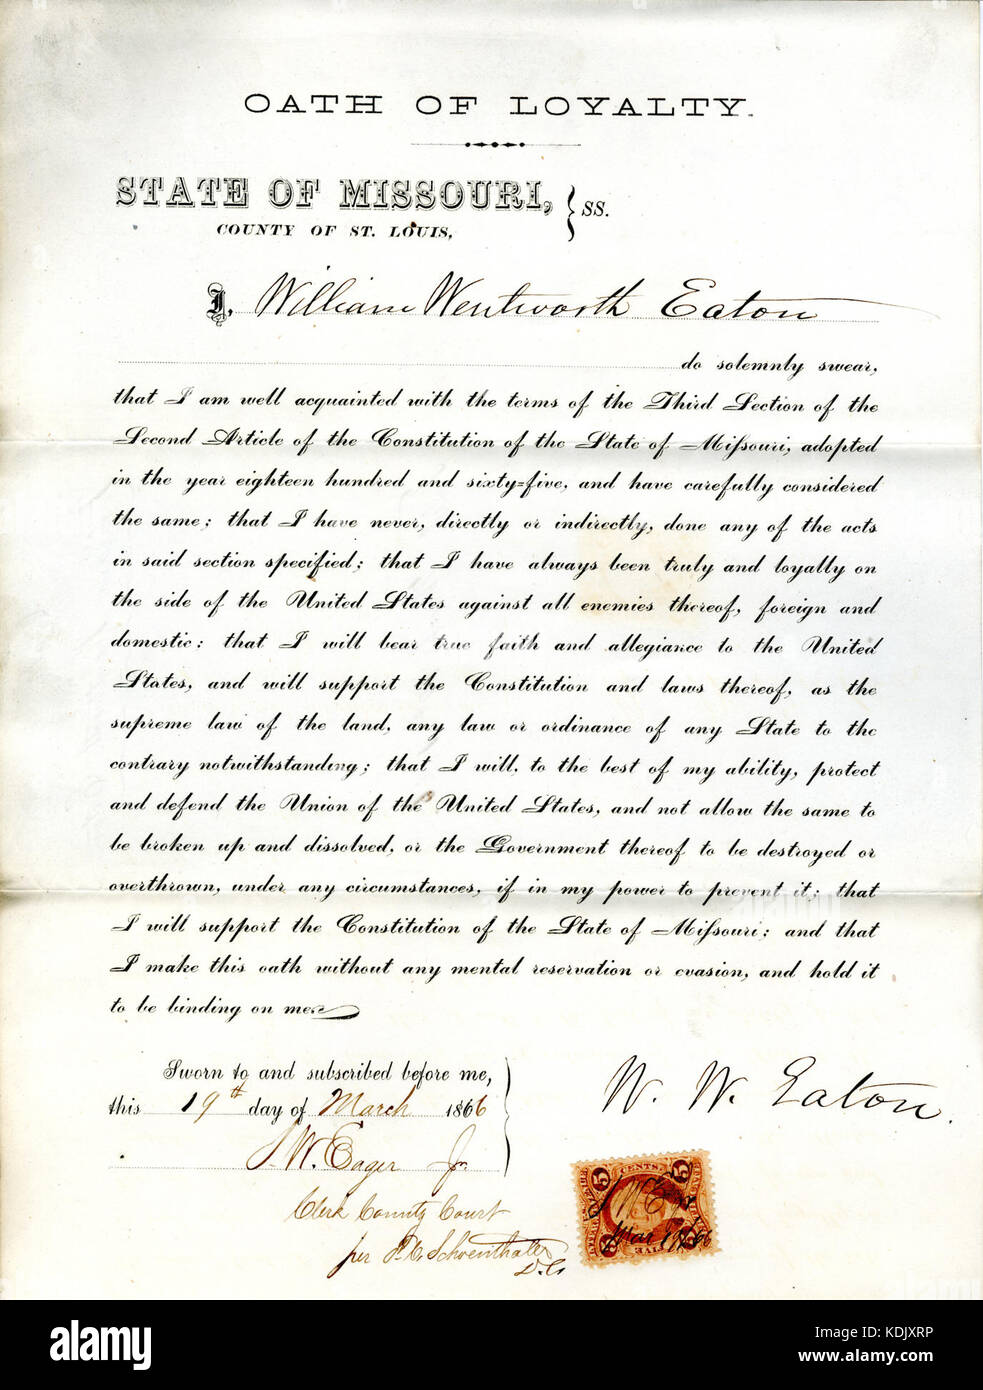 OATH OF LOYALTY.
STATE OF MISSOURI, } SS.
COUNTY OF ST. LOUIS,
I, William Wentworth Eaton
do solemnly swear,
that I am well acquainted with the terms of the Third Section of the
Second Article of the Constitution of the State of Miſsouri, adopted
in the year eighteen hundred and sixty=five, and have carefully considered
the same; that I have never, directly or indirectly, done any of the acts
in said section specified; that I have always been truly and loyally on
the side of the United States against all enemies thereof, foreign and
domestic: that I will bear true faith and allegiance to the United
States, and will support the Constitution and laws thereof, as the
supreme law of the land, any law or ordinance of any State to the
contrary notwithstanding; that I will, to the best of my ability, protect
and defend the Union of the United States, and not allow the same to
be broken up and dissolved, or the Government thereof to be destroyed or
overthrown, under any circumstances, if in my power to prevent it; that
I will support the Constitution of the State of Miſsouri; and that
I make this oath without any mental reservation or evasion, and hold it
to be binding on me.
Sworn to and subscribed before me,
this 19th day of March 1866
W. W. Eaton.
S. W. Eager Jr.
Clerk County Court
per P. C. Schoenthaler
D.C.
5 CENTS 5
Mar 19 66
FIVE
alamy
Image ID: KDJXRP
www.alamy.com